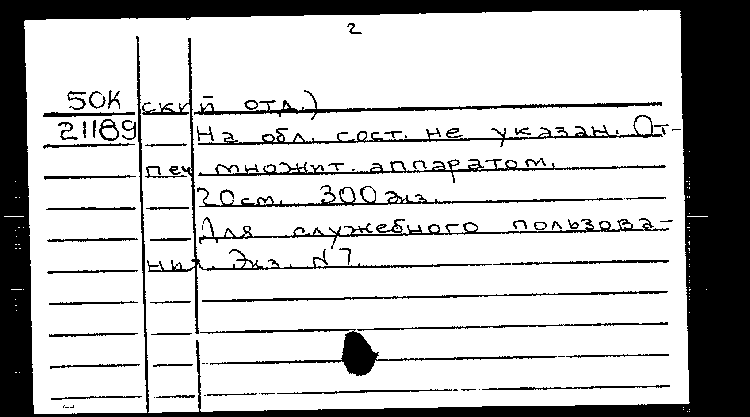 2
50К ский отд.)
21189 На обл. сост. не указан. От-
печ. множит. аппаратом.
20 см. 300 экз.
Для служебного пользова-
ния. Экз. N 7